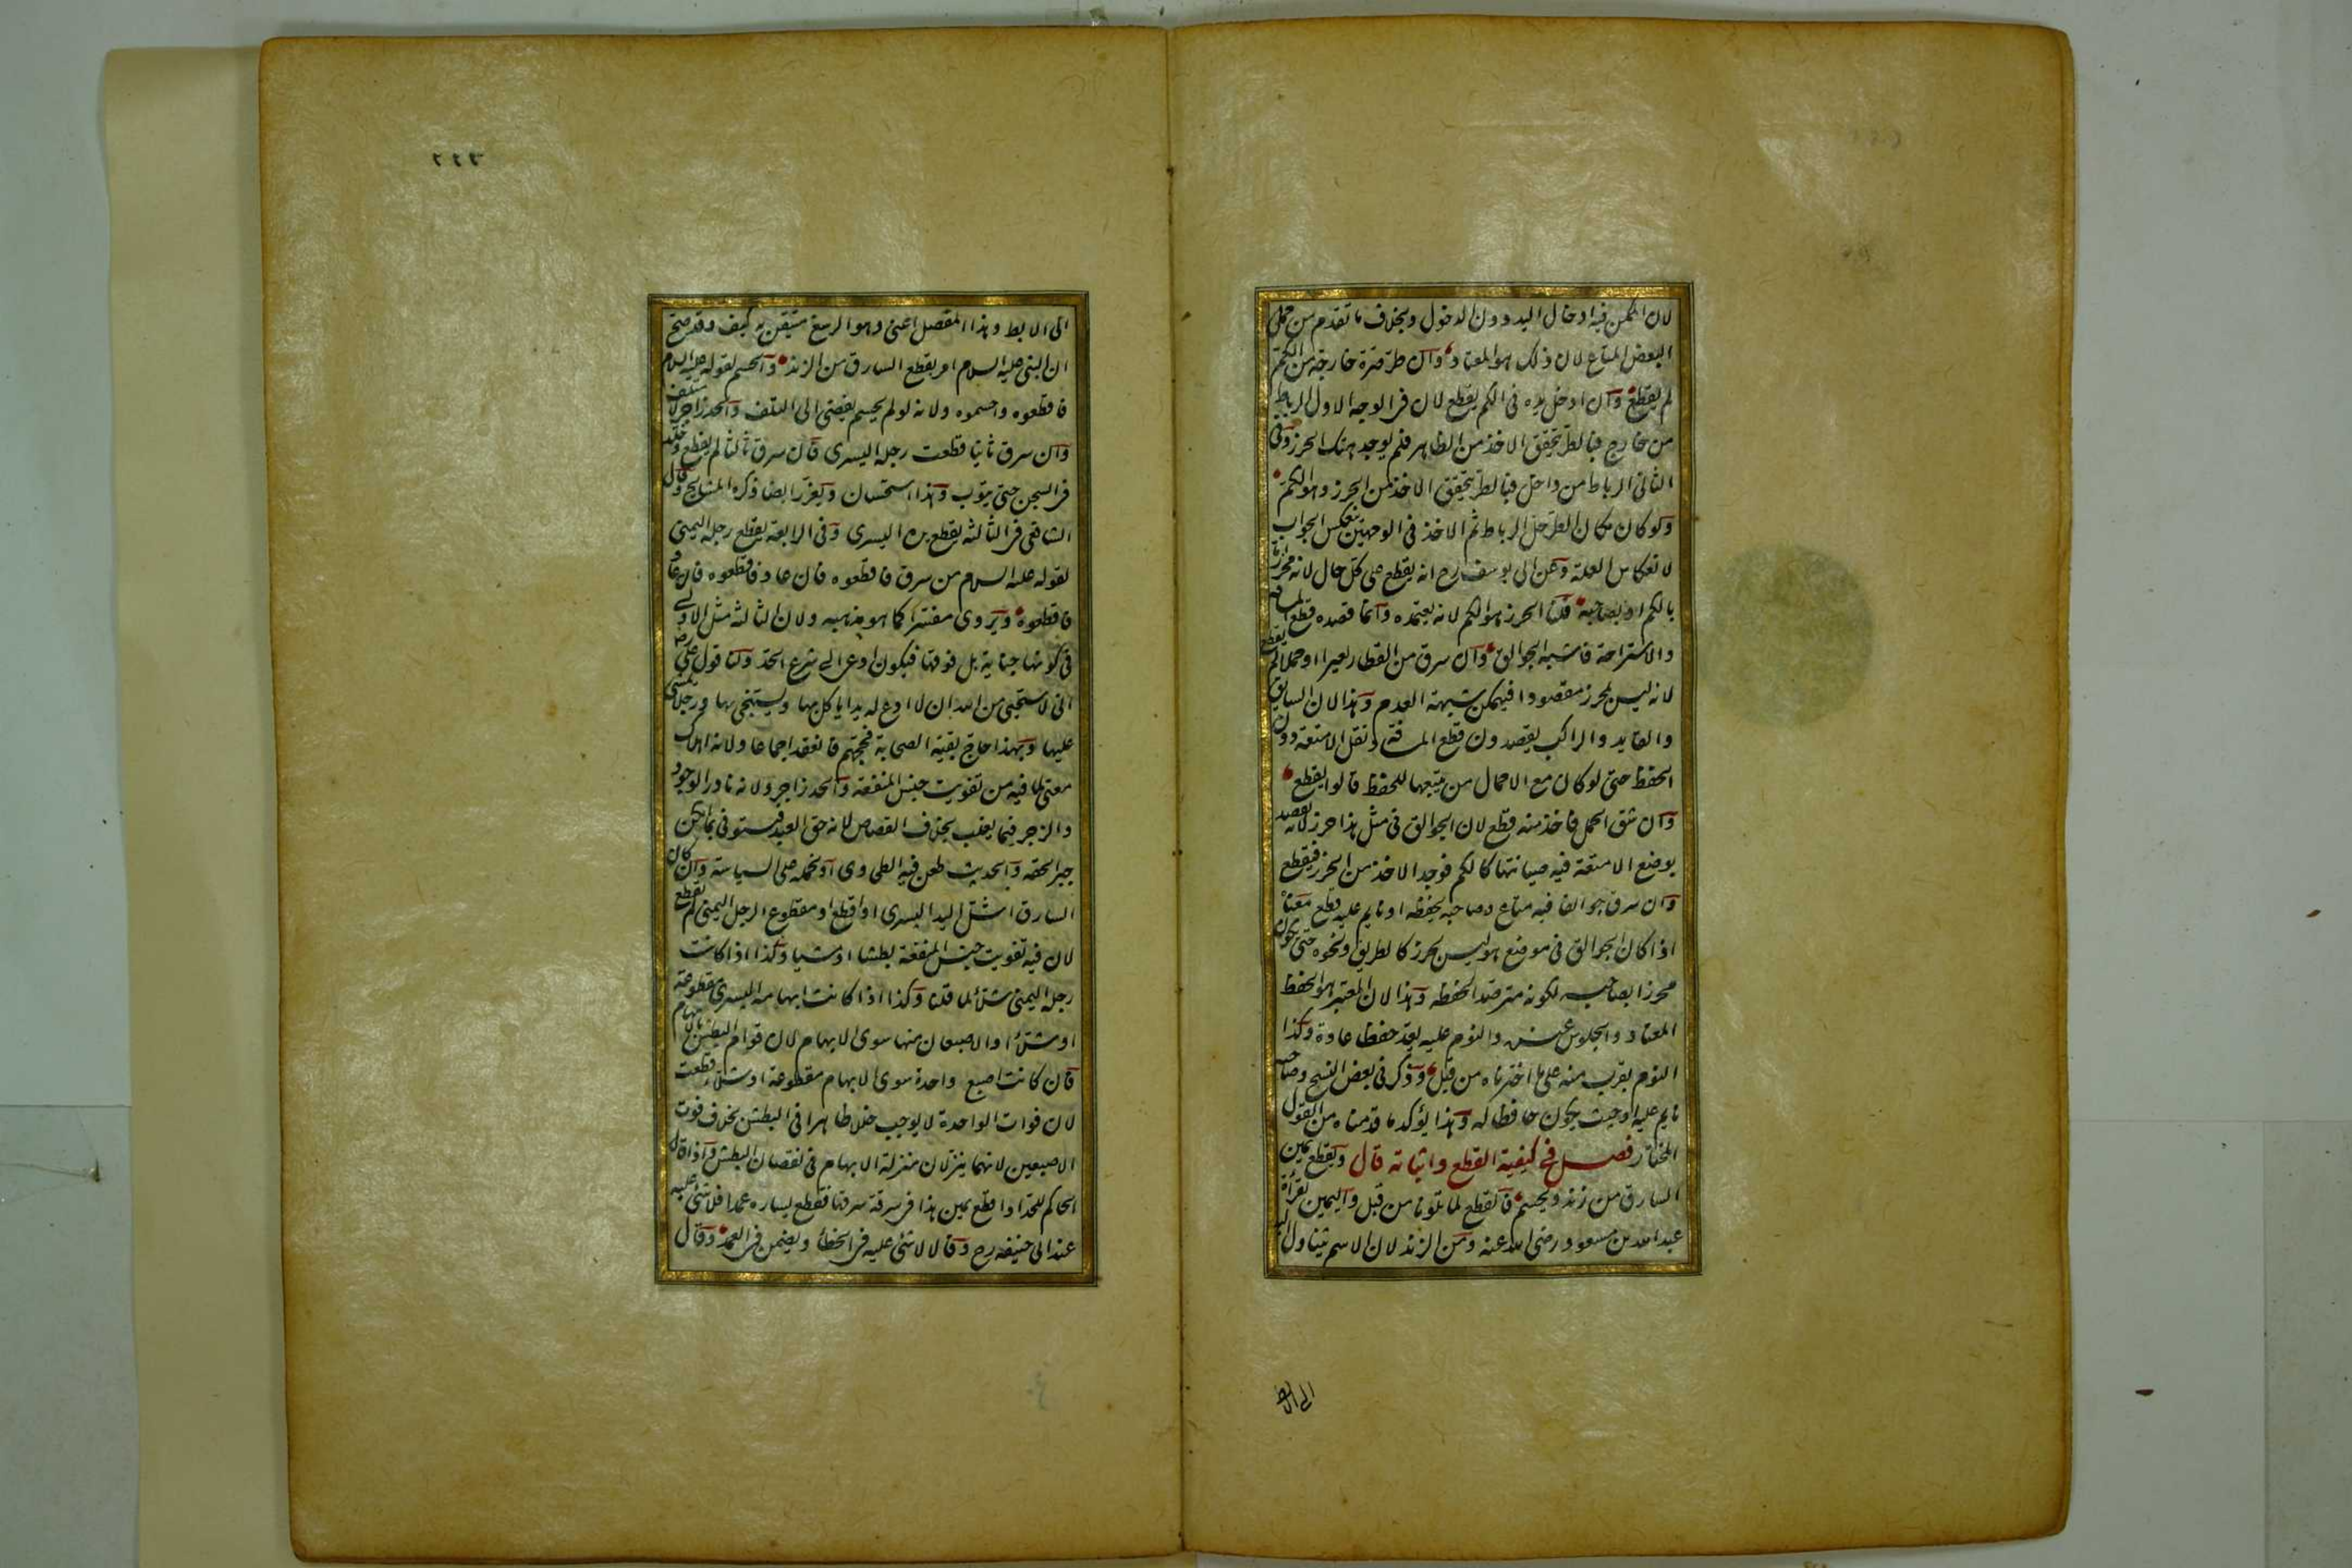 لان الممكن فيه ادخال اليد دون الدخول وبخلاف ما تقدم من حملي
البعض المتاع لان ذلك هو المعتاد وان طر صرة خارجة من الكم
لم يقطع وان ادخل يده في الكم يقطع لان في الوجه الاول الرباط
من خارج فبالطر يتحقق الاخذ من الظاهر فلم يوجد هتك الحرز وفي
الثاني الرباط من داخل فبالطر يتحقق الاخذ من الحرز وهو الكم
ولو كان مكان الطر حل الرباط ثم الاخذ في الوجهين ينعكس الجواب
لانعكاس العلة وعن ابي يوسف رح انه يقطع على كل حال لانه محرز اما
بالكم او بصاحبه قلنا الحرز هو الكم لانه يعتمده وانما قصده قطع المسافة
والاستراحة فاشبه الجوالق وان سرق من القطار بعيرا او حملا لم يقطع
لانه ليس بمحرز مقصودا فيمكن شبهة العدم وهذا لان السايق
والقايد والراكب يقصدون قطع المسافة ونقل الامتعة دون
الحفظ حتى لو كان مع الاحمال من يتبعها للحفظ قالوا يقطع
وان شق الحمل فاخذ منه قطع لان الجوالق في مثل هذا حرز لانه يقصد
بوضع الامتعة فيه صيانتها كالكم فوجد الاخذ من الحرز فيقطع
وان سرق جوالقا فيه متاع وصاحبه يحفظه او نايم عليه قطع معناه
اذا كان الجوالق في موضع هو ليس بحرز كالطريق ونحوه حتى يكون
محرزا بصاحبه لكونه مترصدا لحفظه وهذا لان المعتبر هو الحفظ
المعتاد والجلوس عنده والنوم عليه يعد حفظا عادة وكذا
النوم بقرب منه على ما اخترناه من قبل وذكر في بعض النسخ وصاحبه
نايم عليه او حيث يكون حافظا له وهذا يؤكد ما قدمناه من القول
المختار فصل في كيفية القطع واثباته قال ويقطع يمين
السارق من زند ويحسم فالقطع لما تلونا من قبل واليمين بقرأة
عبد الله بن مسعود رضي الله عنه ومن الزند لان الاسم يتناول اليد
الى الابط
٢٤٣
الى الابط وهذا المفصل اعني وهو الرسغ متيقن به كيف وقد صح
ان النبي عليه السلام امر بقطع السارق من الزند والحسم لقوله عليه السلام
فاقطعوه واحسموه ولانه لو لم يحسم يفضي الى التلف والحد زاجر لا متلف
وان سرق ثانيا قطعت رجله اليسرى فان سرق ثالثا لم يقطع وخلد
في السجن حتى يتوب وهذا استحسان ويعزر ايضا ذكره المشايخ وقال
الشافعي في الثالثة يقطع يده اليسرى وفي الرابعة يقطع رجله اليمنى
لقوله عليه السلام من سرق فاقطعوه فان عاد فاقطعوه فان عاد
فاقطعوه ويروى مفسرا كما هو مذهبه ولان الثالثة مثل الاولى
في كونها جناية بل فوقها فيكون ادعى الى شرع الحد ولنا قول علي رضه
اني لاستحيي من الله ان لا ادع له يدا ياكل بها ويستنجي بها ورجلا يمشي
عليها وبهذا حاج بقية الصحابة فحجهم فانعقد اجماعا ولانه اهلاك
معنى لما فيه من تفويت جنس المنفعة والحد زاجر ولانه نادر الوجود
والزجر فيما يغلب بخلاف القصاص لانه حق العبد فيستوفي ما امكن
جبرا لحقه والحديث طعن فيه الطحاوي او نحمله على السياسة وان كان
السارق اشل اليد اليسرى او اقطع او مقطوع الرجل اليمنى لم يقطع
لان فيه تفويت جنس المنفعة بطشا او مشيا وكذا اذا كانت
رجله اليمنى شلاء لما قلنا وكذا اذا كانت ابهامه اليسرى مقطوعة
او شلاء او الاصبعان منها سوى الابهام لان قوام البطش بالابهام
فان كانت اصبع واحدة سوى الابهام مقطوعة او شلاء قطعت
لان فوات الواحدة لا يوجب خللا ظاهرا في البطش بخلاف فوت
الاصبعين لانهما ينزلان منزلة الابهام في نقصان البطش واذا قال
الحاكم للحداد اقطع يمين هذا في سرقة سرقها فقطع يساره عمدا فلا شئ عليه
عند ابي حنيفه رح وقالا لا شئ عليه في الخطأ ويضمن في العمد وقال